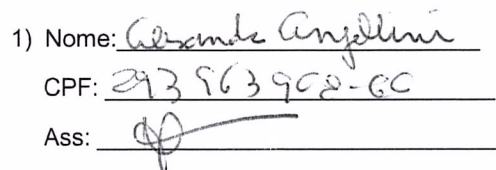 1) Nome: Alexandre Angellini
CPF: 293 963 908-60
Ass: